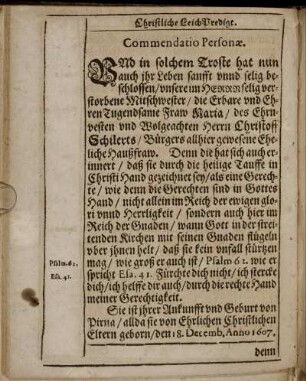 Christliche LeichPredigt.
Commendatio Personæ.
VNd in solchem Troste hat nun
auch ihr Leben sanfft vnnd selig be-
schlossen/vnsere im HERREN selig ver-
storbene Mitschwester/ die Erbare vnd Eh-
ren Tugendsame Fraw Maria/ des Ehrn-
vesten vnd Wolgeachten Herrn Christoff
Schilerts/ Bürgers allhier gewesene Ehe-
liche Haußfraw. Denn die hat sich auch er-
innert/ daß sie durch die heilige Tauffe in
Christi Hand gezeichnet sey/als eine Gerech-
te/ wie denn die Gerechten sind in Gottes
Hand/ nicht allein im Reich der ewigen glo-
ri vnnd Herrligkeit/ sondern auch hier im
Reich der Gnaden/ wann Gott in der strei-
tenden Kirchen mit seinen Gnaden flügeln
vber ihnen helt/ daß sie kein vnfall stürtzen
mag/ wie groß er auch ist/ Psalm 61. wie er
spricht Esa. 41. Fürchte dich nicht/ich stercke
dich/ich helffe dir auch/durch die rechte Hand
meiner Gerechtigkeit.
Psalm. 61.
Esa. 41.
Sie ist ihrer Ankunfft vnd Geburt von
Pirna/ allda sie von Ehrlichen Christlichen
Eltern geboren/den 18. Decemb. Anno 1607.
denn